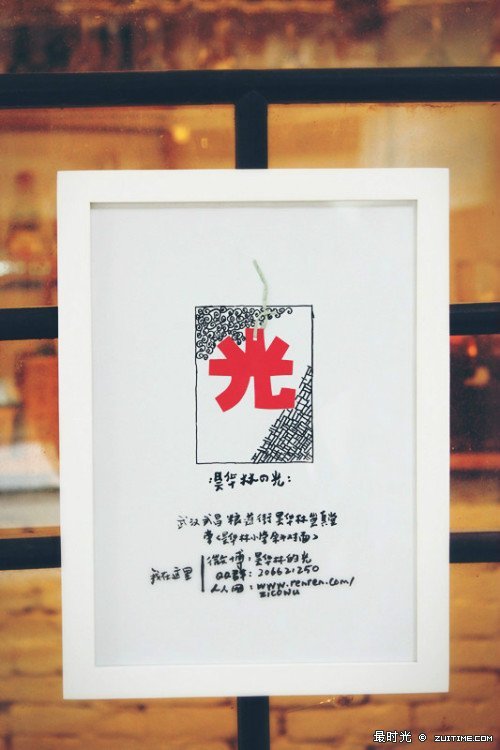 光
昙华林の光:
武汉武昌粮道街昙华林崇真堂
旁<昙华林小学斜对面>
我在这里
微博:昙华林的光
QQ群:206621250
人人网:www.renren.com/
zicowu
最时光 © ZUITIME.COM